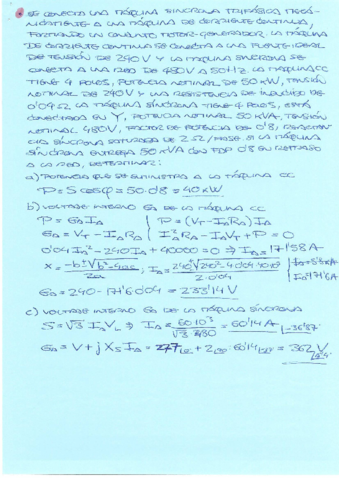 SE CONECTA UNA MÁQUINA SÍNCRONA TRIFÁSICA MECÁ-
NICAMENTE A UNA MÁQUINA DE CORRIENTE CONTINUA,
FORMANDO UN CONJUNTO MOTOR-GENERADOR. LA MÁQUINA
DE CORRIENTE CONTINUA SE CONECTA A UNA FUENTE IDEAL
DE TENSIÓN DE 240 V Y LA MÁQUINA SÍNCRONA SE
CONECTA A UNA RED DE 480 V A 50 Hz. LA MÁQUINA CC
TIENE 4 POLOS, POTENCIA NOMINAL DE 50 KW, TENSIÓN
NOMINAL DE 240 V Y UNA RESISTENCIA DE INDUCIDO DE
0'04 Ω. LA MÁQUINA SÍNCRONA TIENE 4 POLOS, ESTÁ
CONECTADA EN Y, POTENCIA NOMINAL 50 KVA, TENSIÓN
NOMINAL 480V, FACTOR DE POTENCIA DE 0'8, REACTAN-
CIA SÍNCRONA SATURADA DE 2 Ω/FASE. SI LA MÁQUINA
SÍNCRONA ENTREGA 50 KVA CON FDP 0'8 EN RETRASO
A LA RED, DETERMINAR:
a) POTENCIA QUE SE SUMINISTRA A LA MÁQUINA CC
P = S cosφ = 50·0'8 = 40 KW
b) VOLTAJE INTERNO EA DE LA MÁQUINA CC
P = EA IA | P = (VT - IA RA) IA
EA = VT - IA RA | IA² RA - IA VT + P = 0
0'04 IA² - 240 IA + 40000 = 0 ⇒ IA = 171'58 A
EA = 240 - 171'6·0'04 = 233'14 V
c) VOLTAJE INTERNO EA DE LA MÁQUINA SÍNCRONA